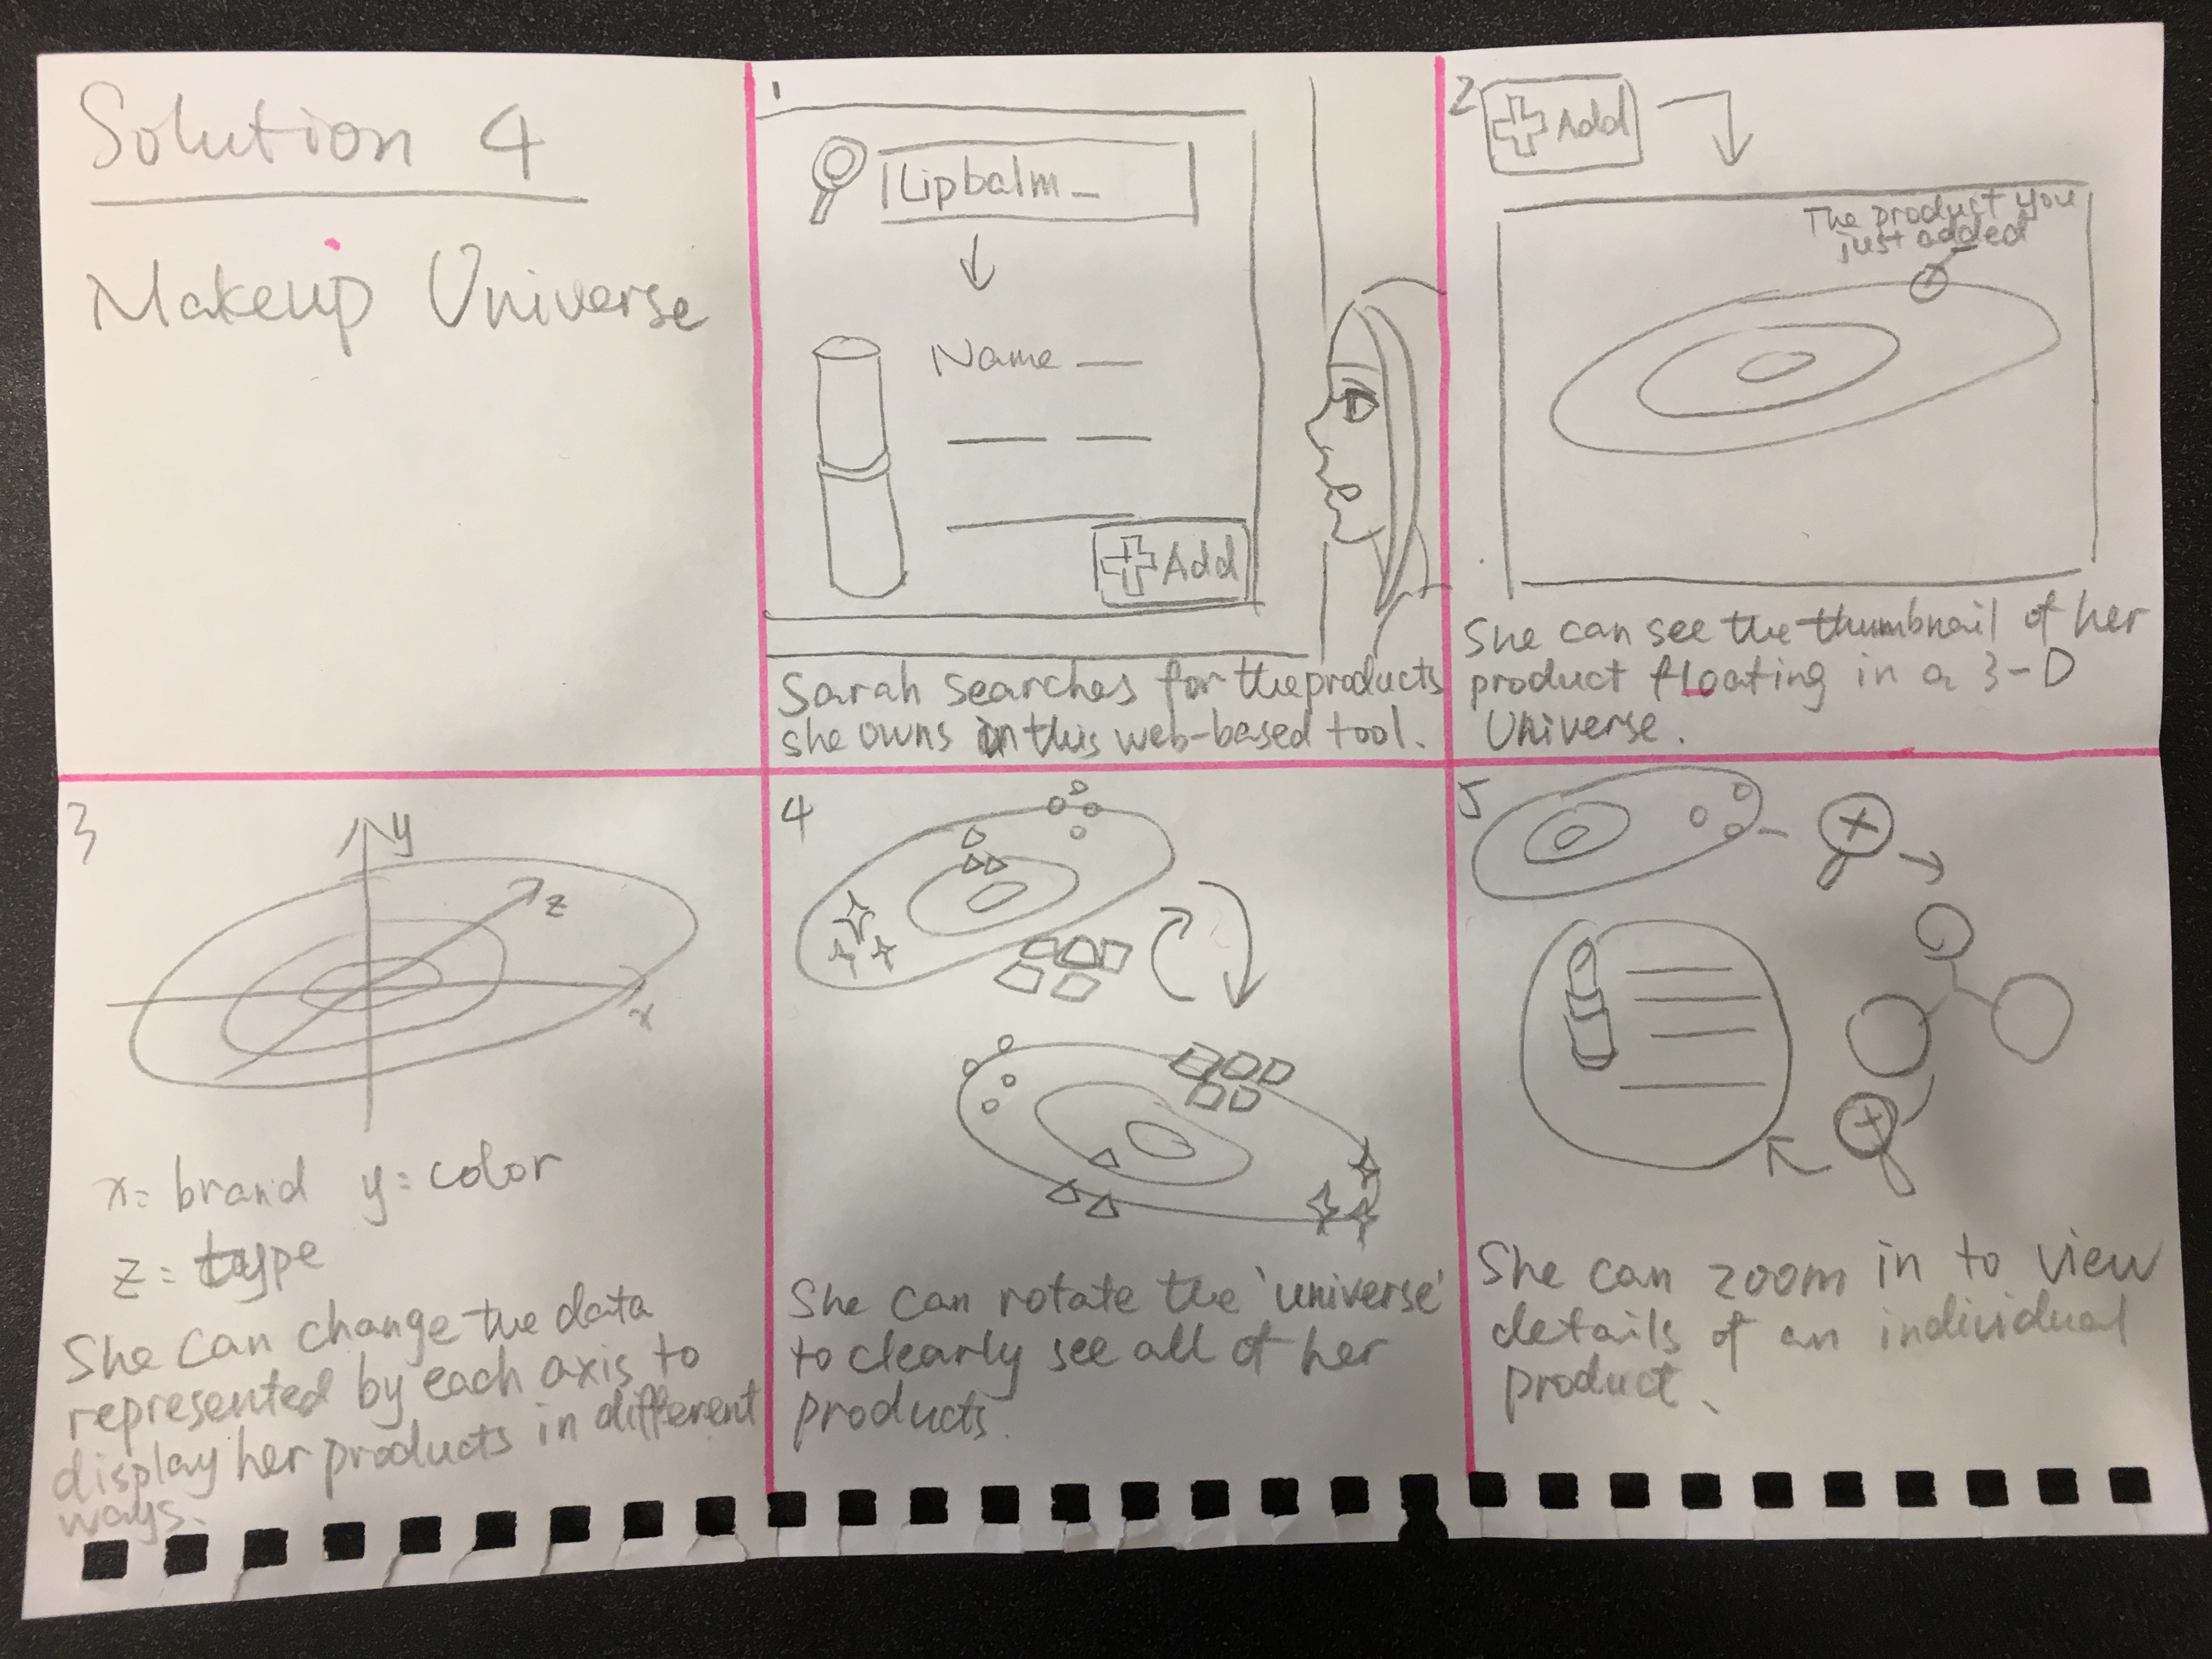 Solution 4
Makeup Universe
1
Lipbalm_
Name
Add
Sarah searches for the products
she owns in this web-based tool.
2
Add
The product you
just added
She can see the thumbnail of her
product floating in a 3-D
Universe.
3
y
z
x
x= brand y= color
z= type
She can change the data
represented by each axis to
display her products in different
ways.
4
She can rotate the 'universe'
to clearly see all of her
products.
5
She can zoom in to view
details of an individual
product.